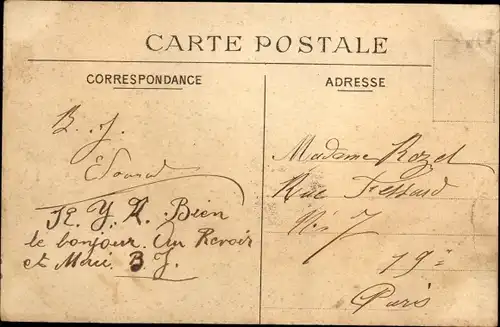 CARTE POSTALE
CORRESPONDANCE
ADRESSE
B. J.
Edouard
Bien
le bonjour. Au Revoir
et Merci B J.
Madame Rozel
Rue Fessard
No 7
19e
Paris